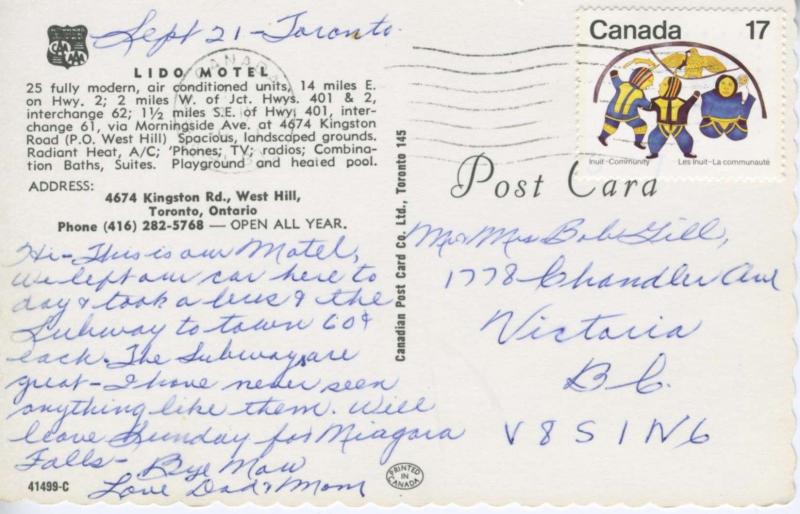 Sept 21 - Toronto.
CAA
AAA
CANADA
Canada 17
Inuit-Community Les Inuit-La communauté
LIDO MOTEL
25 fully modern, air conditioned units, 14 miles E.
on Hwy. 2; 2 miles W. of Jct. Hwys. 401 & 2,
interchange 62; 1½ miles S.E. of Hwy. 401, inter-
change 61, via Morningside Ave. at 4674 Kingston
Road (P.O. West Hill) Spacious, landscaped grounds.
Radiant Heat, A/C; 'Phones; TV; radios; Combina-
tion Baths, Suites. Playground and heated pool.
ADDRESS:
4674 Kingston Rd., West Hill,
Toronto, Ontario
Phone (416) 282-5768 — OPEN ALL YEAR.
Hi - This is our Motel,
We left our car here to
day & took a bus & the
Subway to town 60¢
each. The Subway are
great - I have never seen
anything like them. Will
leave Sunday for Niagara
Falls - Bye Now
Love Dad & Mom
41499-C
Canadian Post Card Co. Ltd., Toronto 145
Post Card
Mr & Mrs Bob Gill,
1778 Chandler Ave
Victoria
B.C.
V8S 1N6
PRINTED IN CANADA